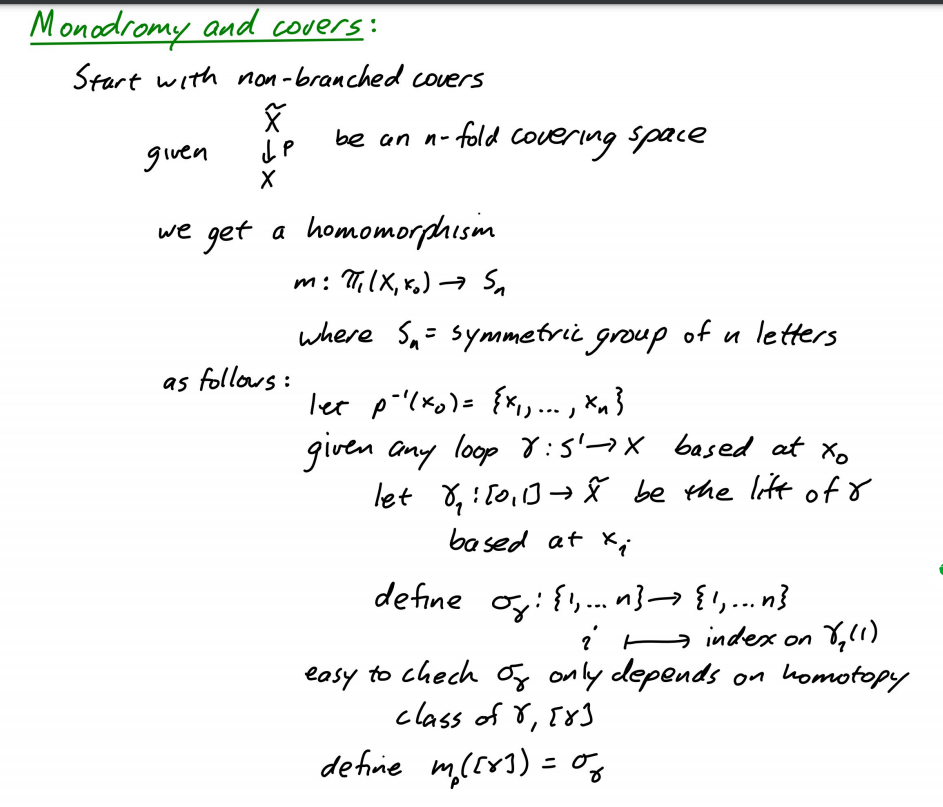 Monodromy and covers:
Start with non-branched covers
X̃
given ↓p be an n-fold covering space
X
we get a homomorphism
m: π₁(X, x₀) → Sₙ
where Sₙ = symmetric group of n letters
as follows:
let p⁻¹(x₀) = {x₁, ..., xₙ}
given any loop γ: S¹ → X based at x₀
let γᵢ: [0,1] → X̃ be the lift of γ
based at xᵢ
define σ_γ: {1, ... n} → {1, ... n}
i ⟼ index on γᵢ(1)
easy to check σ_γ only depends on homotopy
class of γ, [γ]
define mₚ([γ]) = σ_γ